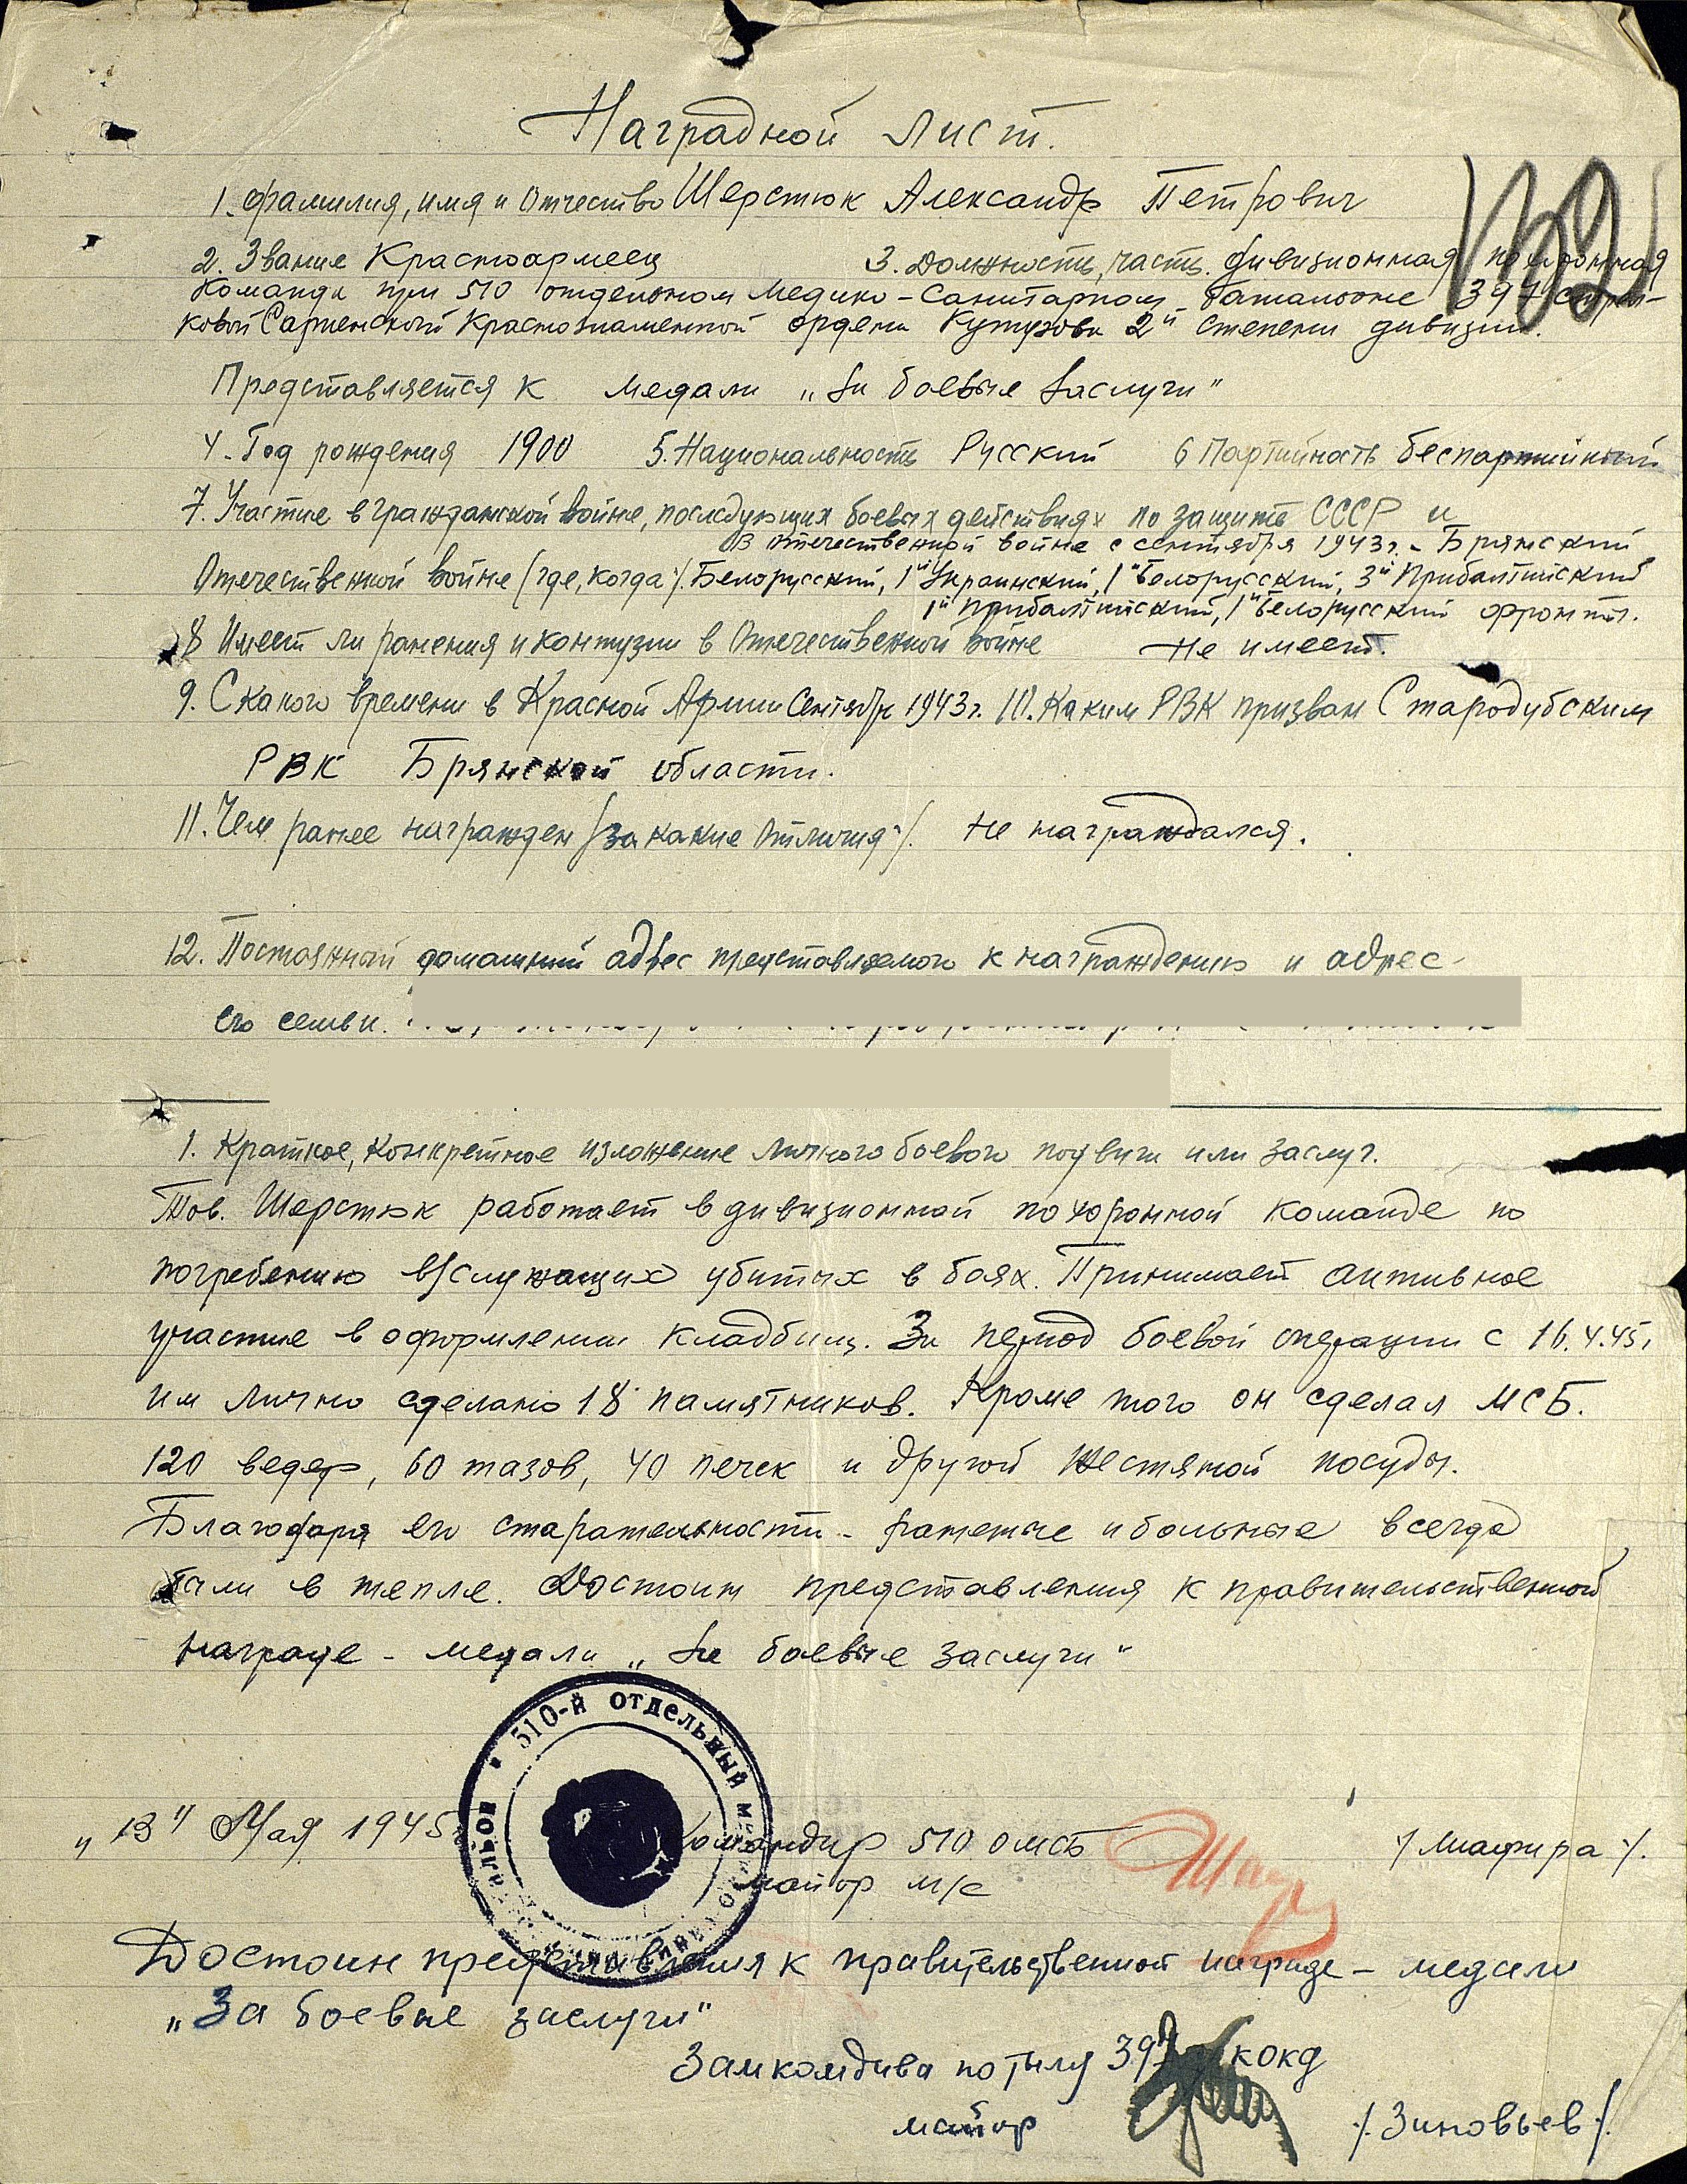 Наградной лист.
1. Фамилия, имя и Отчество Шерстюк Александр Петрович
2. Звание Красноармеец 3. Должность, часть. дивизионная похоронная
команда при 510 отдельном Медико-Санитарном батальоне 397 стрел-
ковой Сарненской Краснознаменной ордена Кутузова 2й степени дивизии.
Представляется к медали „За боевые заслуги"
4. Год рождения 1900 5. Национальность Русский 6 Партийность беспартийный
7. Участие в гражданской войне, последующих боевых действиях по защите СССР и
В отечественной войне с сентября 1943г. - Брянский,
Отечественной войне (где, когда). Белорусский, 1й Украинский, 1й Белорусский, 3й Прибалтийский
1й Прибалтийский, 1й Белорусский фронты.
8 Имеет ли ранения и контузии в Отечественной войне Не имеет.
9. С какого времени в Красной Армии Сентябрь 1943г. 10. Каким РВК призван Стародубским
РВК Брянской области.
11. Чем ранее награжден /за какие отличия/. Не награждался.
12. Постоянный домашний адрес представляемого к награждению и адрес
его семьи.
1. Краткое, конкретное изложение личного боевого подвига или заслуг.
Тов. Шерстюк работает в дивизионной похоронной команде по
погребению в/служащих убитых в боях. Принимает активное
участие в оформлении кладбищ. За период боевой операции с 16.4.45г
им лично сделано 18 памятников. Кроме того он сделал МСБ.
120 ведер, 60 тазов, 40 печек и другой жестяной посуды.
Благодаря его старательности - раненые и больные всегда
были в тепле. Достоин представления к правительственной
награде - медали „За боевые заслуги"
510-й ОТДЕЛЬНЫЙ
„13" Мая 1945 Командир 510 омсб
майор м/с /Шафира/.
Достоин представления к правительственной награде - медали
„За боевые заслуги"
Замкомдива по тылу 397 скокд
майор /Зиновьев/.